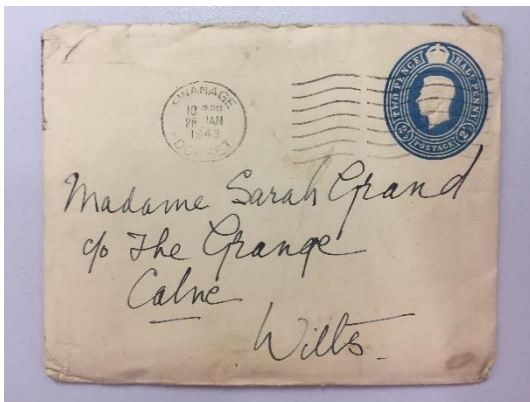 SWANAGE
10 15 PM
28 JAN
1943
DORSET
TWO PENCE HALF PENNY
2½ POSTAGE 2½
Madame Sarah Grand
c/o The Grange
Calne
Wilts.